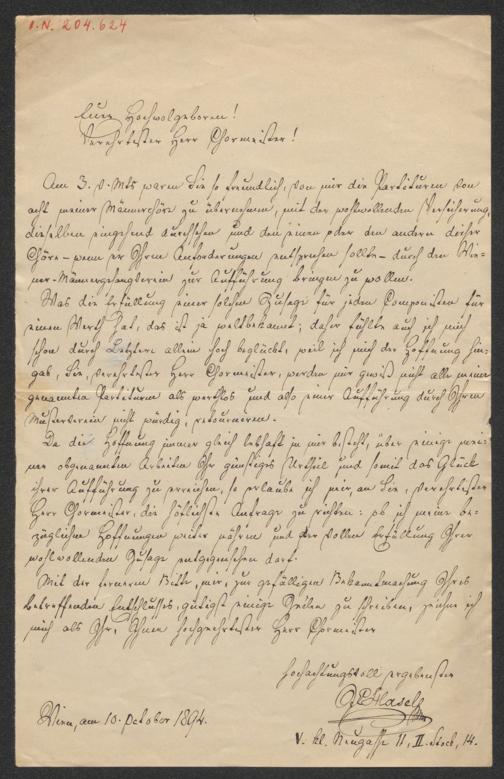 I.N. 204.624
Euer Hochwolgeboren!
Verehrtester Herr Chormeister!
Am 3. v. Mts waren Sie so freundlich, von mir die Partituren von
acht meiner Männerchöre zu übernehmen, mit der wohlwollenden Versicherung,
dieselben eingehend durchsehen und den einen oder den andern dieser
Chöre – wenn er Ihren Anforderungen entsprechen sollte – durch den Wie-
ner-Männergesangverein zur Aufführung bringen zu wollen.
Was die Erfüllung einer solchen Zusage für jeden Componisten für
einen Werth hat, das ist ja weltbekannt; daher fühlte auch ich mich
schon durch Letztere allein hoch beglückt, weil ich mich der Hoffnung hin-
gab, Sie, verehrtester Herr Chormeister, werden mir gewiß nicht alle meine
genannten Partituren als werthlos und also einer Aufführung durch Ihren
Musterverein nicht würdig, retourniren.
Da die Hoffnung immer gleich lebhaft in mir besteht, über einige mei-
ner obgenannten Arbeiten Ihr günstiges Urtheil und somit das Glück
ihrer Aufführung zu erreichen, so erlaube ich mir, an Sie, verehrtester
Herr Chormeister, die höflichste Anfrage zu richten: ob ich meine be-
züglichen Hoffnungen weiter nähren und der vollen Erfüllung Ihrer
wohlwollenden Zusage entgegensehen darf.
Mit der ferneren Bitte, mir, zur gefälligen Bekanntmachung Ihres
betreffenden Entschlusses, gütigst einige Zeilen zu schreiben, zeichne ich
mich als Ihr, Ihnen hochgeehrtester Herr Chormeister
hochachtungsvoll ergebenster
Hasel
Wien, am 10. October 1894.
V. kl. Neugasse 11, II. Stock, 14.